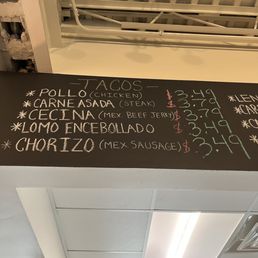 - TACOS -
* POLLO (CHICKEN) $3.49
* CARNE ASADA (STEAK) $3.79
* CECINA (MEX. BEEF JERKY) $3.79
* LOMO ENCEBOLLADO $3.49
* CHORIZO (MEX SAUSAGE) $3.49